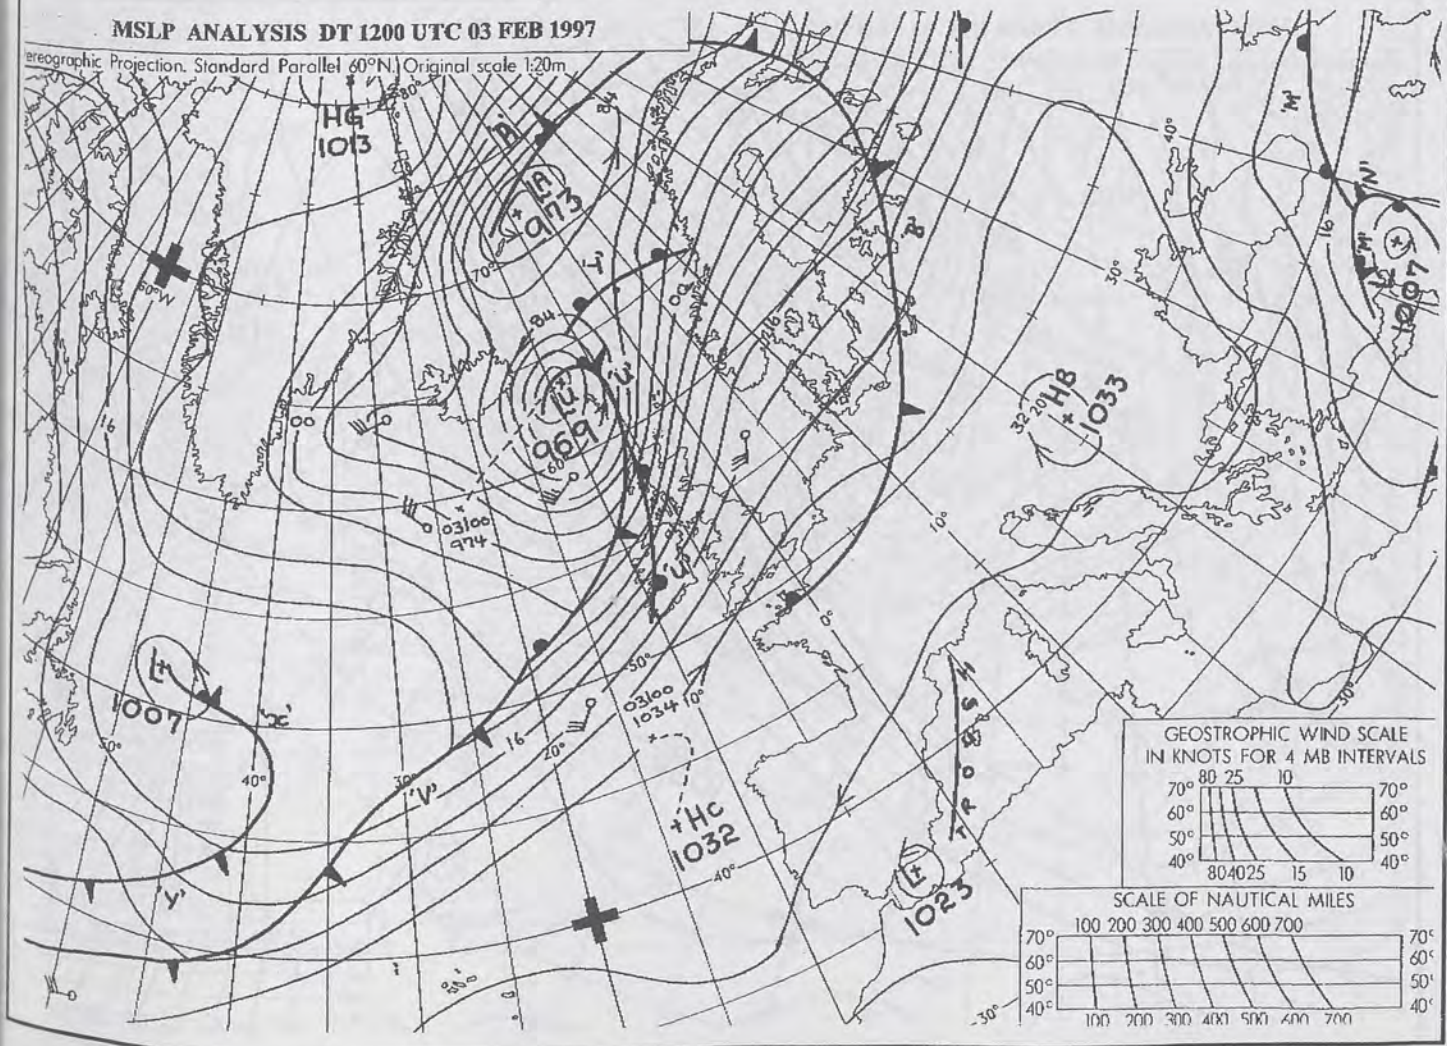 MSLP ANALYSIS DT 1200 UTC 03 FEB 1997
ereographic Projection. Standard Parallel 60°N. Original scale 1:20m
80°
HG
1013
'R'
84
LA
973
70°
60°W
'T'
84
'U'
LU
969
60°
00
16
03100
974
'U'
'B'
00
16
HB
1033
32
20
10°
0°
30°
40°
'M'
16
'N'
'M'
LZ
1007
30°
L
1007
'X'
50°
40°
30°
20°
'V'
16
50°
03100
1034
10°
Hc
1032
40°
'Y'
TROUGH
L
1023
30°
GEOSTROPHIC WIND SCALE
IN KNOTS FOR 4 MB INTERVALS
80 25 10
70° 70°
60° 60°
50° 50°
40° 40°
80 40 25 15 10
SCALE OF NAUTICAL MILES
100 200 300 400 500 600 700
70° 70°
60° 60°
50° 50°
40° 40°
100 200 300 400 500 600 700